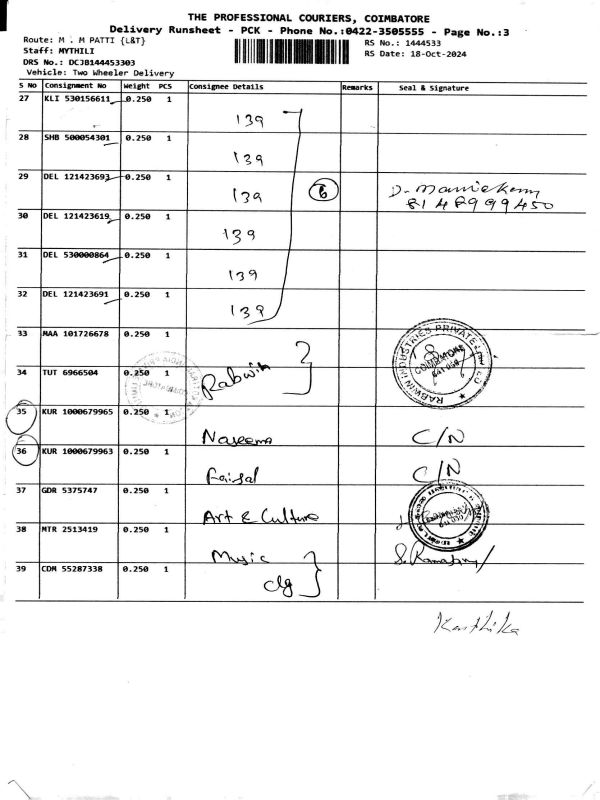 THE PROFESSIONAL COURIERS, COIMBATORE
Delivery Runsheet - PCK - Phone No.:0422-3505555 - Page No.:3
Route: M . M PATTI {L&T}
RS No.: 1444533
Staff: MYTHILI
RS Date: 18-Oct-2024
DRS No.: DCJB144453303
Vehicle: Two Wheeler Delivery
S No Consignment No Weight PCS Consignee Details Remarks Seal & Signature
27 KLI 530156611 0.250 1
139
28 SHB 500054301 0.250 1
139
29 DEL 121423693 0.250 1
139 6
8148999450
30 DEL 121423619 0.250 1
139
31 DEL 530000864 0.250 1
139
32 DEL 121423691 0.250 1
139
33 MAA 101726678 0.250 1
2
RABWIN INDUSTRIES PRIVATE
COIMBATORE
34 TUT 6966504 0.250 1
Rabwin
35 KUR 1000679965 0.250 1
Naseema C/N
36 KUR 1000679963 0.250 1
Faisal C/N
37 GDR 5375747 0.250 1
Art & Culture
38 MTR 2513419 0.250 1
Music
39 CDM 55287338 0.250 1
clg
Karthika